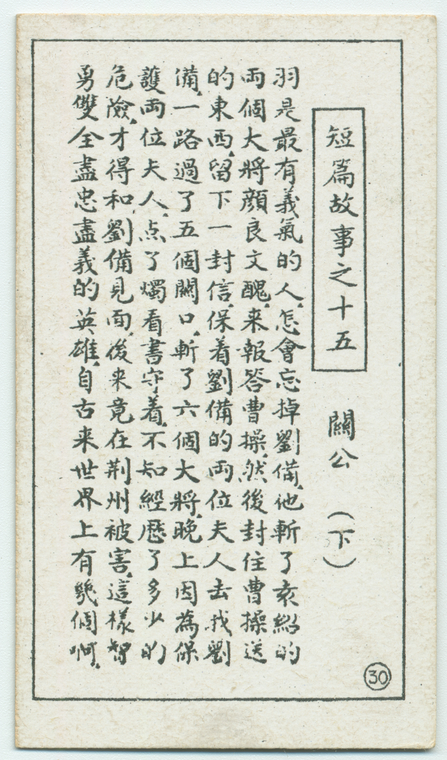 短篇故事之十五
關公（下）
羽是最有義氣的人、怎會忘掉劉備、他斬了袁紹的
兩個大將顏良文醜、來報答曹操、然後封住曹操送
的東西、留下一封信、保着劉備的兩位夫人去找劉
備、一路過了五個關口、斬了六個大將、晚上因為保
護兩位夫人、点了燭看書守着、不知經歷了多少的
危險、才得和劉備見面、後来竟在荆州被害、這樣智
勇雙全盡忠盡義的英雄、自古来世界上有幾個啊、
30